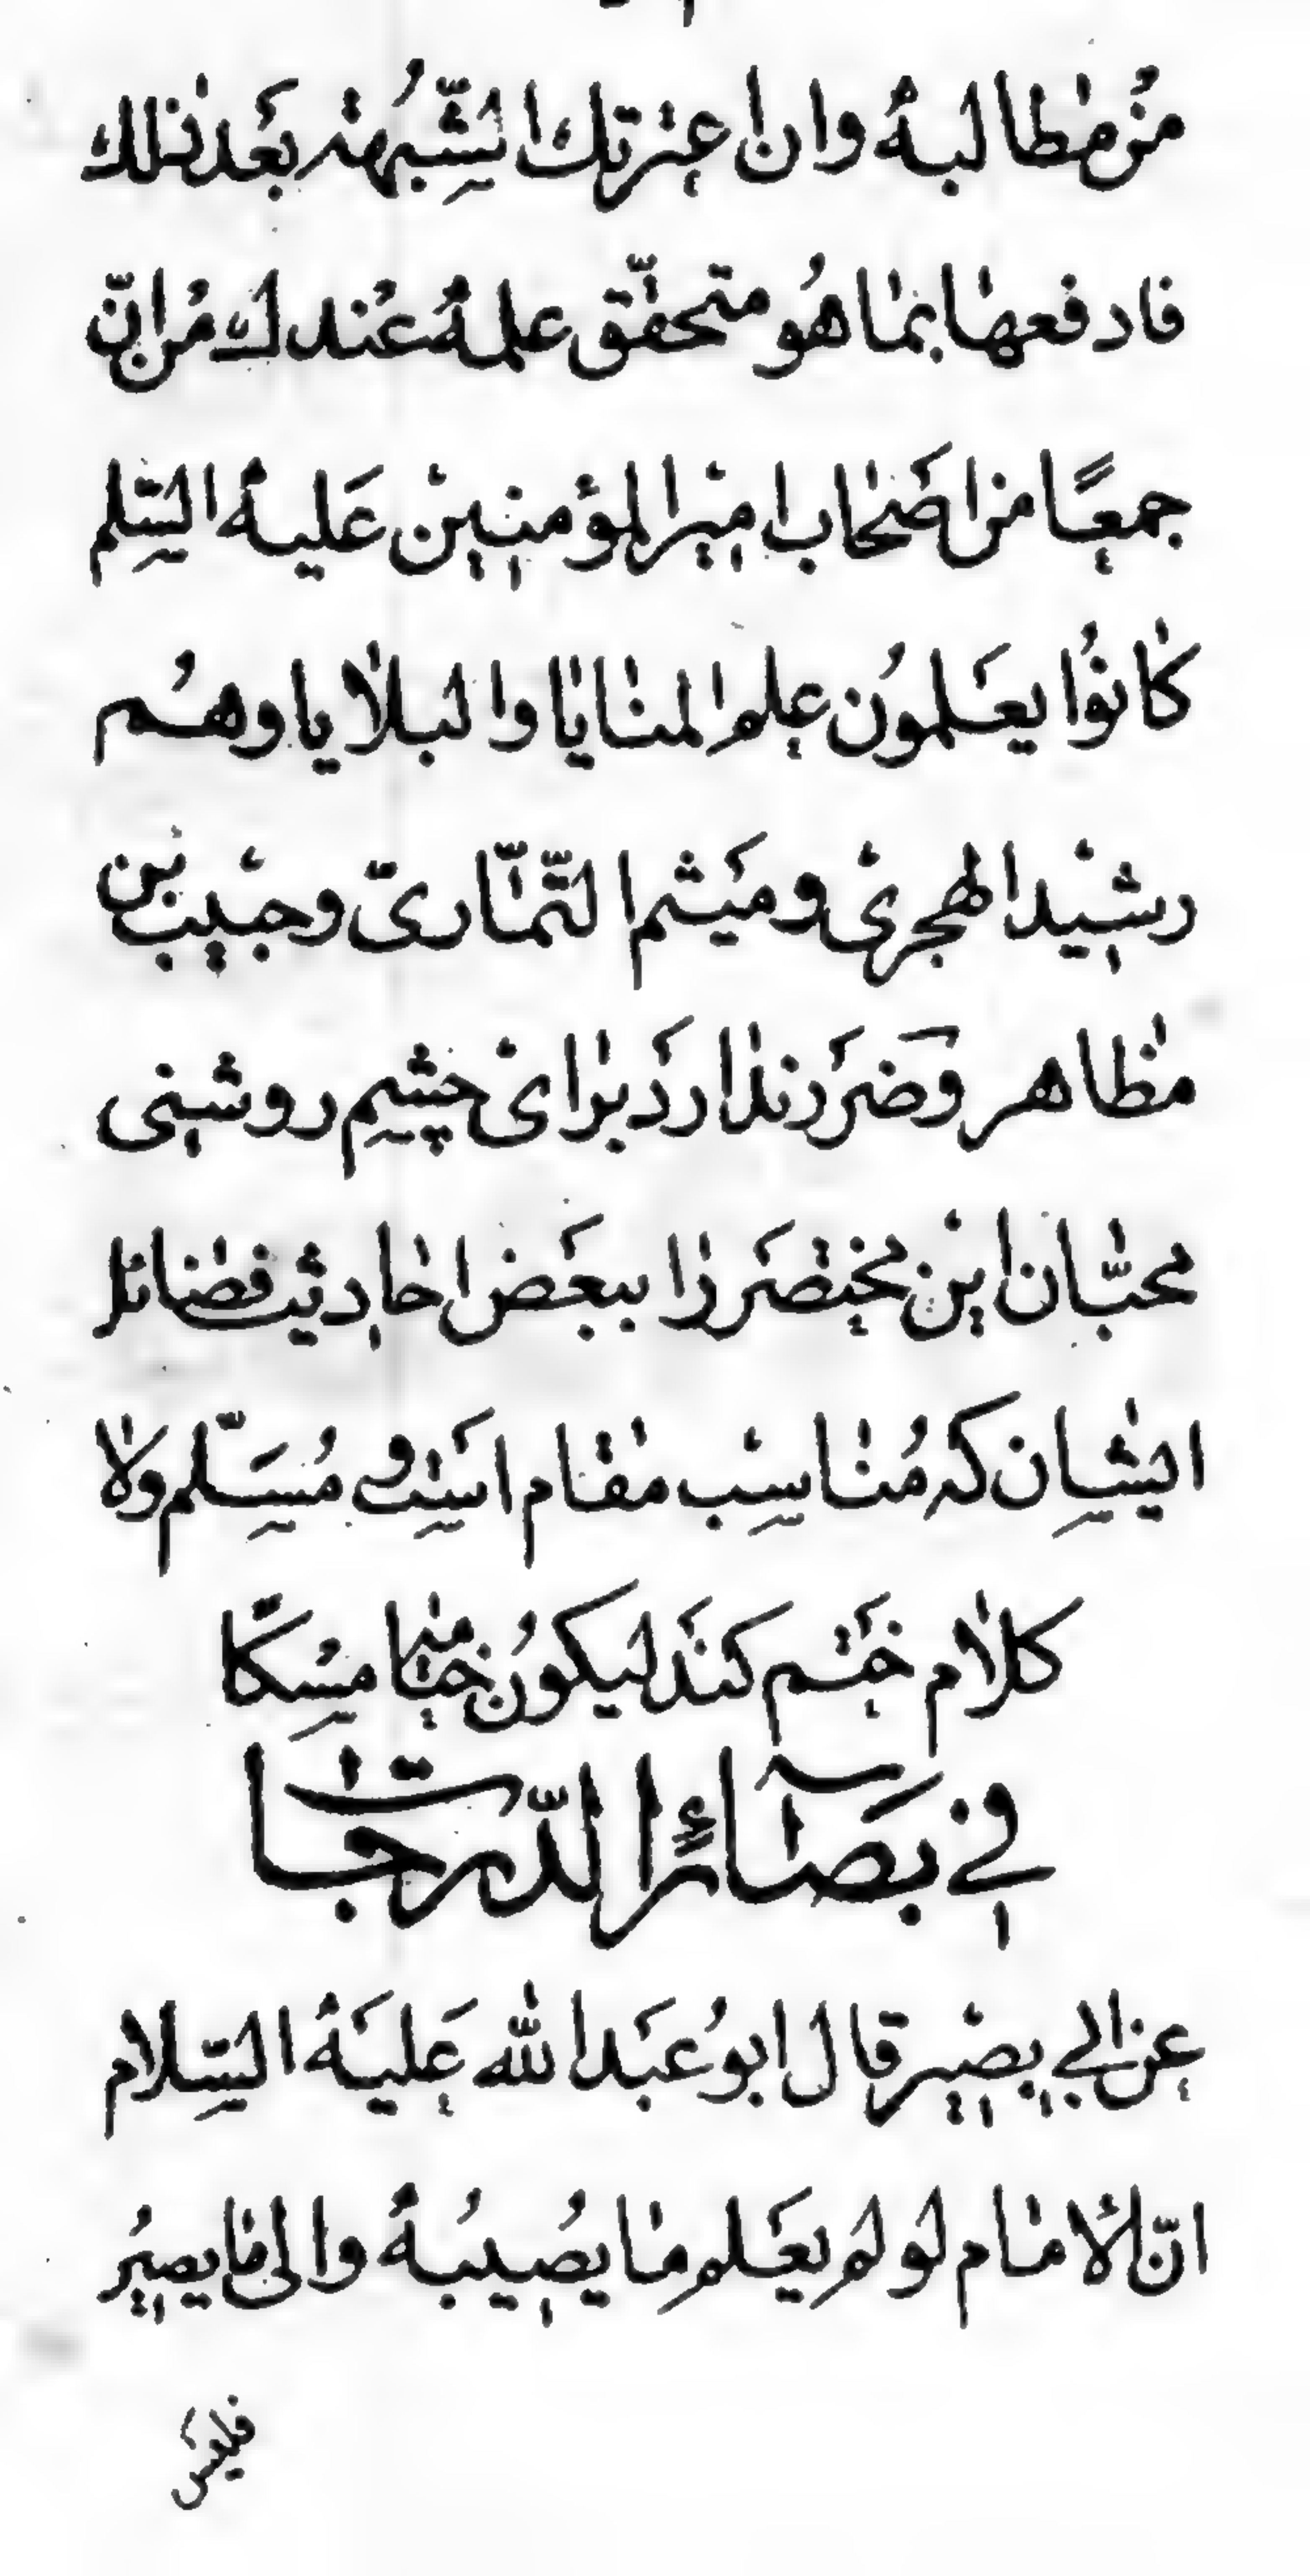 من مطالبه وان اعترتك الشبهة بعد ذلك
فادفعها بما هو متحقّق علمه عندك من انّ
جمعًا من اصحاب امیر المؤمنین علیه السّلم
كانوا یعلمون علم المنایا والبلایا وهم
رشید الهجری ومیثم التّمّاری وحبیب بن
مظاهر وضرر ندارد برای چشم روشنی
محبّان این مختصر را ببعض احادیث فضائل
ایشان که مناسب مقام است و مسلّم ولا
كلام ختم کند لیکون ختامها مسکًا
في بصائر الدّرجات
عن ابي بصیر قال ابو عبد الله علیه السّلام
انّ الامام لو لم یعلم ما یصیبه والی ما یصیر
فلیس